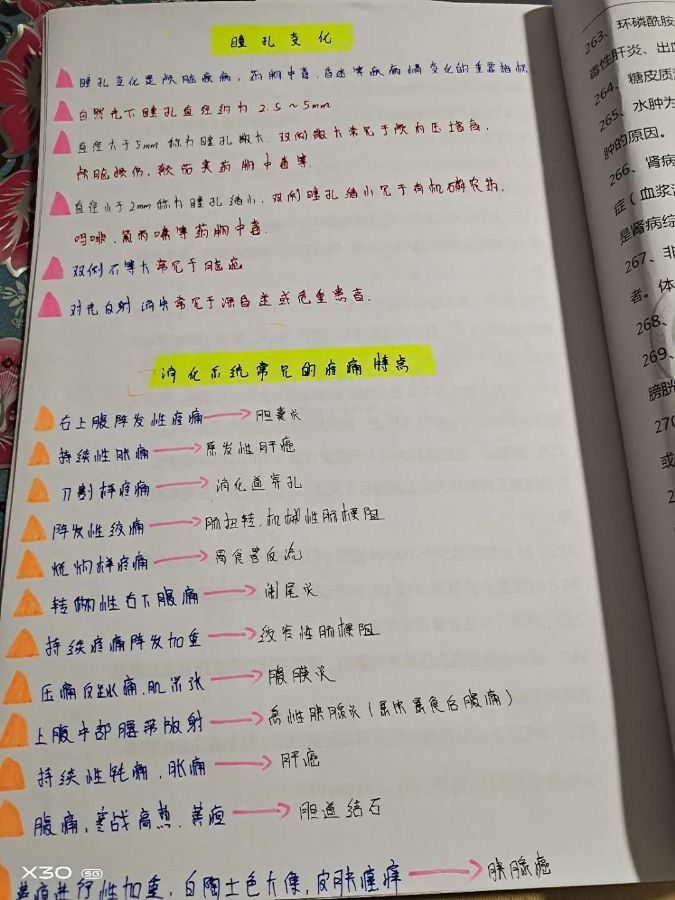 瞳孔变化
瞳孔变化是颅脑疾病，药物中毒，昏迷等疾病病情变化的重要指标.
自然光下瞳孔直径约为 2.5~5mm
直径大于5mm 称为瞳孔散大. 双侧散大常见于颅内压增高.
颅脑损伤，颠茄类药物中毒等.
直径小于2mm称为瞳孔缩小. 双侧瞳孔缩小见于有机磷农药.
吗啡，氯丙嗪等药物中毒.
双侧不等大常见于脑疝
对光反射消失常见于深昏迷或危重患者.
消化系统常见的疼痛特点
右上腹阵发性疼痛→胆囊炎
持续性胀痛→原发性肝癌
刀割样疼痛→消化道穿孔
阵发性绞痛→肠扭转，机械性肠梗阻
烧灼样疼痛→胃食管反流
转移性右下腹痛→阑尾炎
持续疼痛阵发加重→绞窄性肠梗阻
压痛反跳痛，肌紧张→腹膜炎
上腹中部腰带放射→急性胰腺炎（暴饮暴食后腹痛）
持续性钝痛，胀痛→肝癌
腹痛，寒战高热，黄疸→胆道结石
黄疸进行性加重，白陶土色大便，皮肤瘙痒→胰腺癌
263、环磷酰胺
毒性肝炎、出血
264、糖皮质
265、水肿为
肿的原因。
266、肾病
症（血浆
是肾病综
267、非
者。体
268、
269、
膀胱
270
或
2
X30 5G